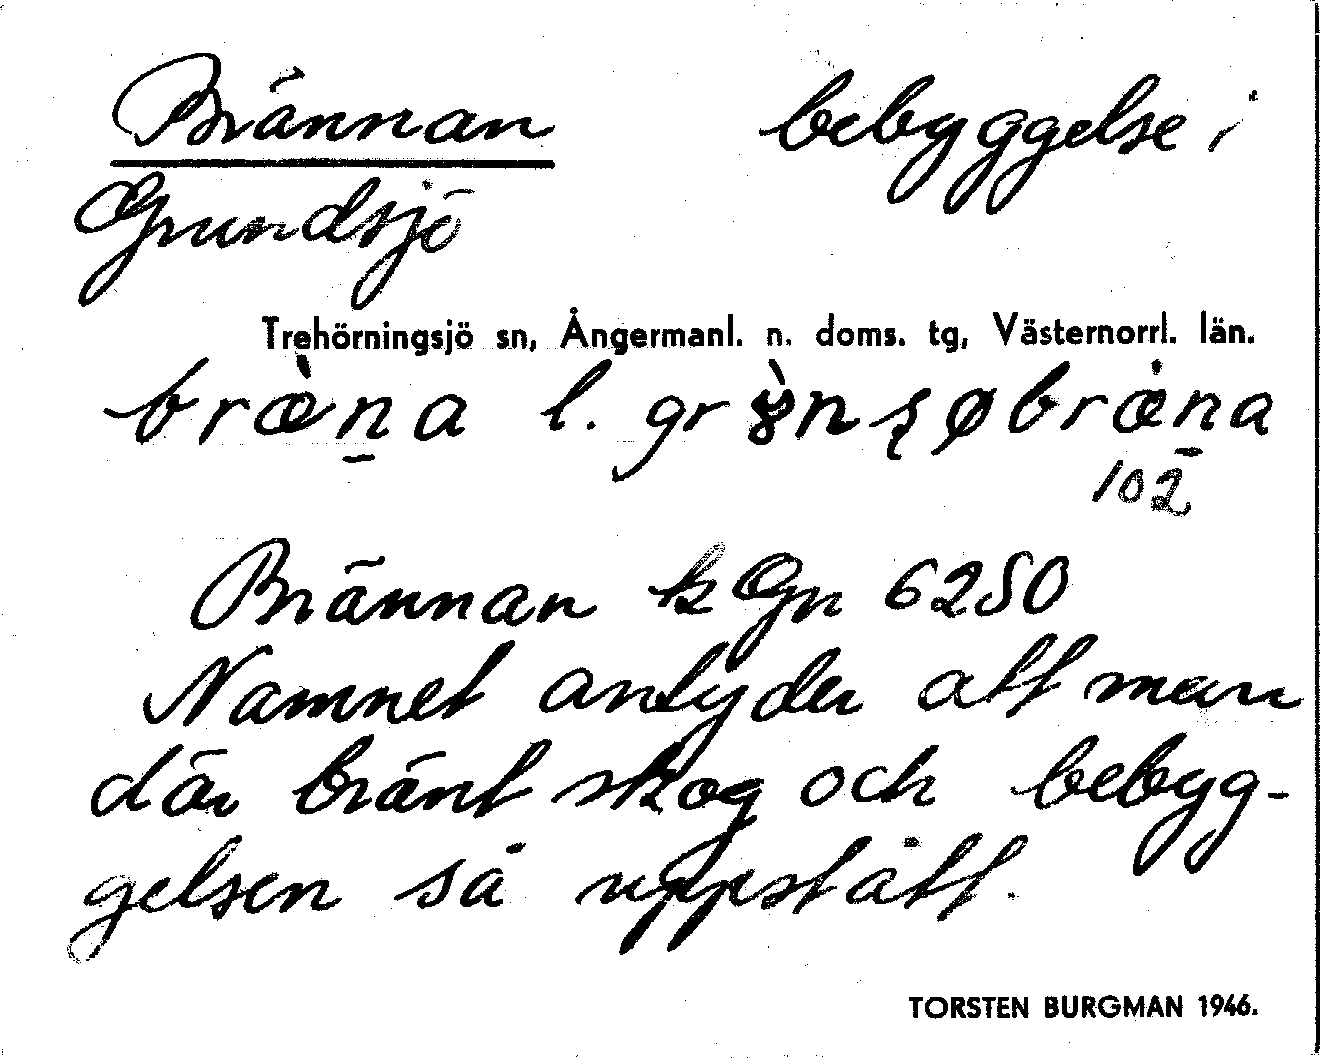 Brännan bebyggelse i
Grundsjö
Trehörningsjö sn, Ångermanl. n. doms. tg, Västernorrl. län.
bræ̀n̠a l.
102
Brännan k Gn 6250
Namnet antyder att man
där bränt skog och bebyg-
gelsen så uppstått.
TORSTEN BURGMAN 1946.